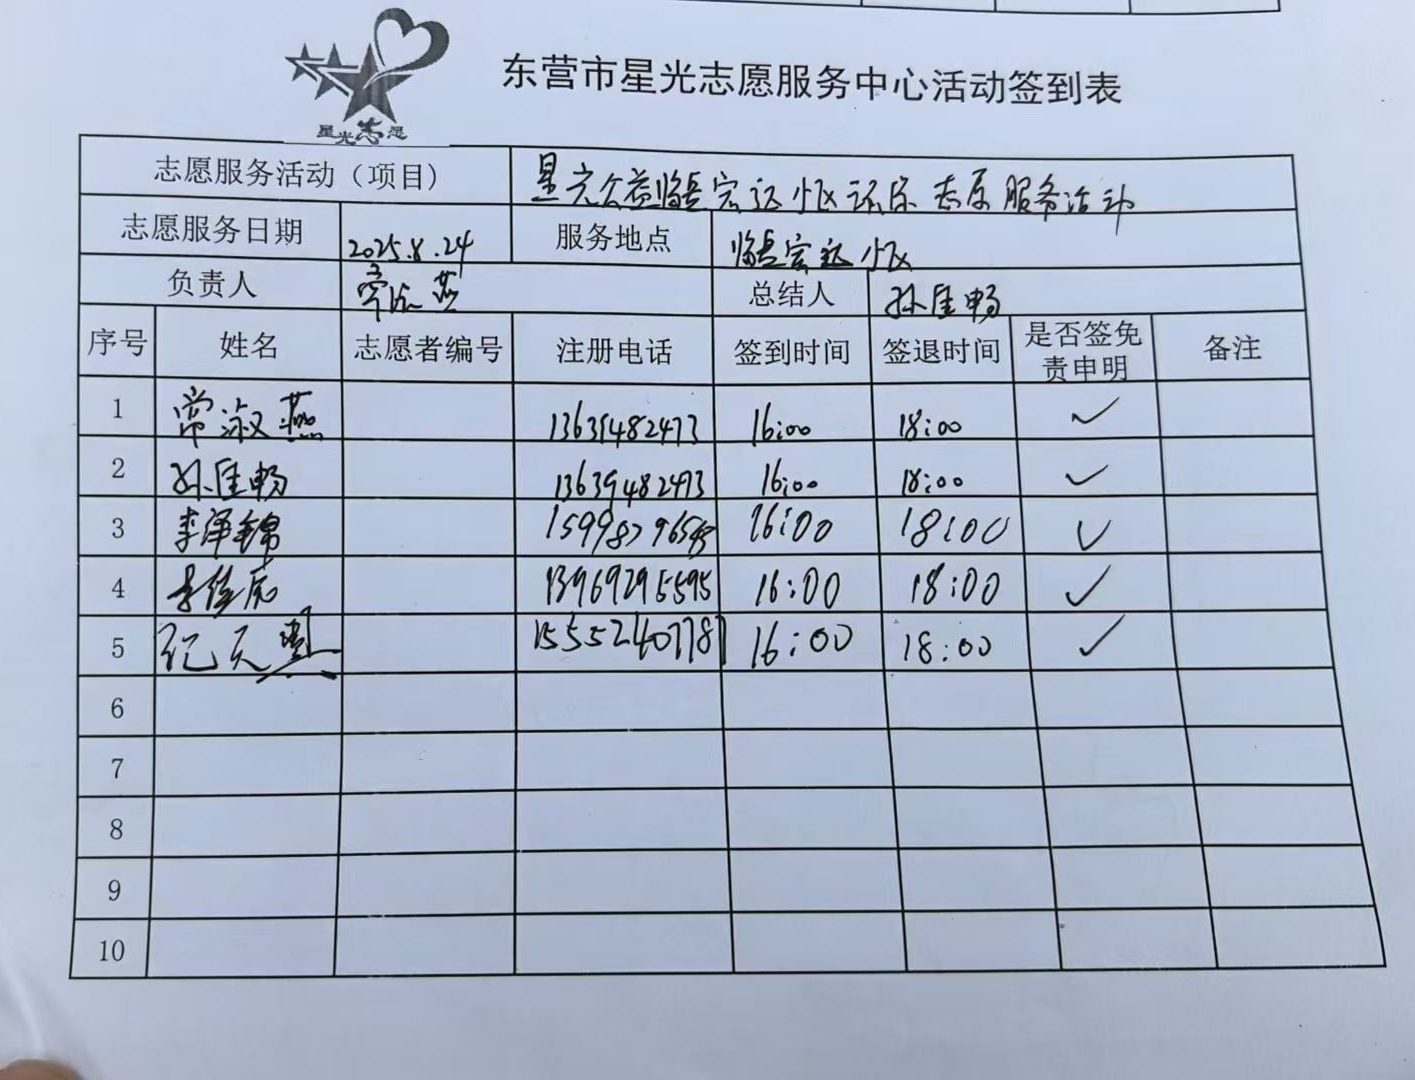 星光志愿
东营市星光志愿服务中心活动签到表
志愿服务活动（项目） 星光公益临盘宏达小区环保志愿服务活动
志愿服务日期 2025.8.24 服务地点 临盘宏达小区
负责人 常淑燕 总结人 孙佳畅
序号 姓名 志愿者编号 注册电话 签到时间 签退时间 是否签免责申明 备注
1 常淑燕 13639482473 16:00 18:00 ✓
2 孙佳畅 13639482473 16:00 18:00 ✓
3 李泽锦 16:00 18:00 ✓
4 13969295595 16:00 18:00 ✓
5 15552407787 16:00 18:00 ✓
6
7
8
9
10